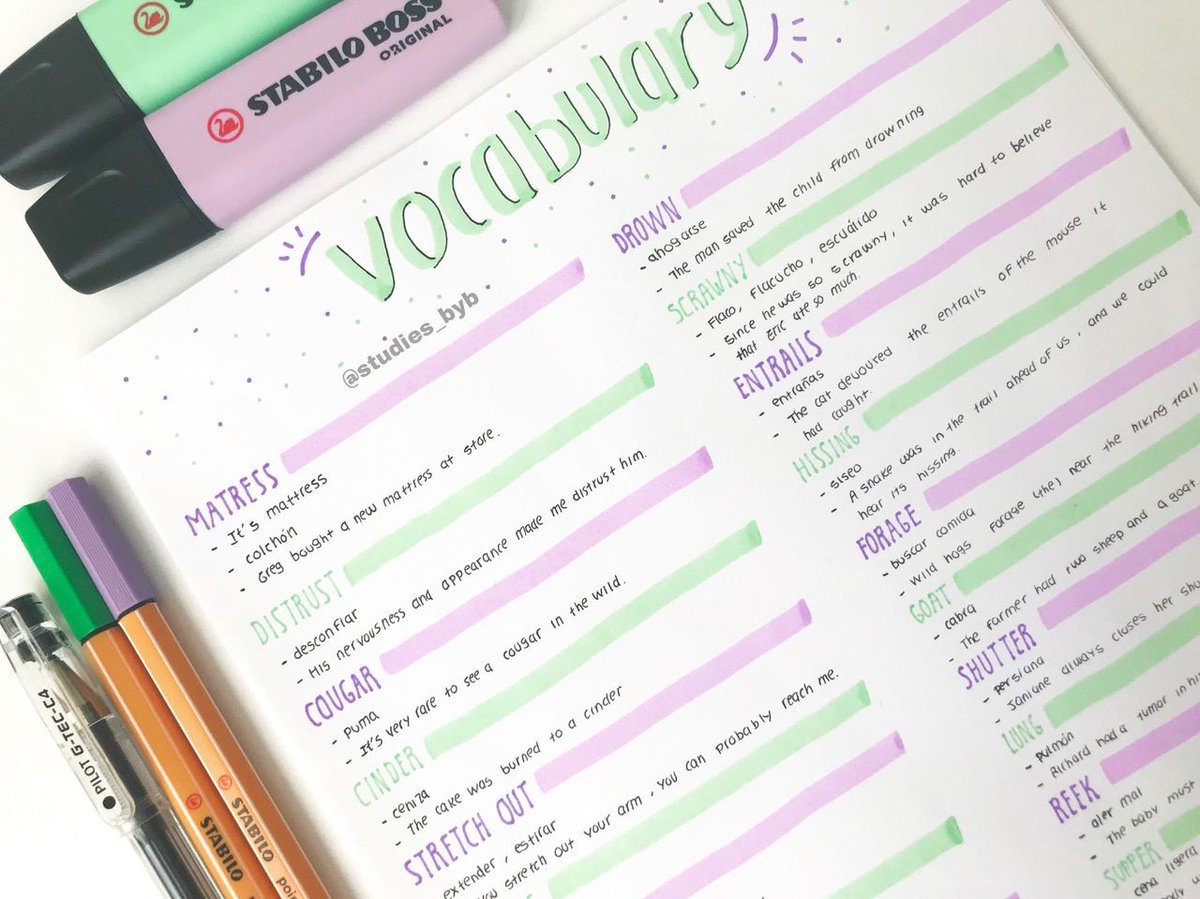 STABILO BOSS
ORIGINAL
vocabulary
@studies_byb
MATRESS
- It's mattress
- colchón
- Greg bought a new mattress at store.
DISTRUST
- desconfiar
- His nervousness and appearance made me distrust him.
COUGAR
- puma
- It's very rare to see a cougar in the wild.
CINDER
- ceniza
- The cake was burned to a cinder
STRETCH OUT
extender, estirar
you stretch out your arm, you can probably reach me.
DROWN
- ahogarse
- The man saved the child from drowning
SCRAWNY
- Flaco, flacucho, escuálido
- Since he was so scrawny, it was hard to believe
that Eric ate so much.
ENTRAILS
- entrañas
- The cat devoured the entrails of the mouse it
had caught.
HISSING
- siseo
- A snake was in the trail ahead of us, and we could
hear its hissing
FORAGE
- buscar comida
- Wild hogs forage (the) near the hiking trail
GOAT
- cabra
- The farmer had two sheep and a goat.
SHUTTER
- persiana
- Janiane always closes her
LUNG
- pulmón
- Richard had a tumor in
REEK
- oler mal
- The baby must
SUPPER
cena ligera
PILOT G-TEC-C4
STABILO
STABILO